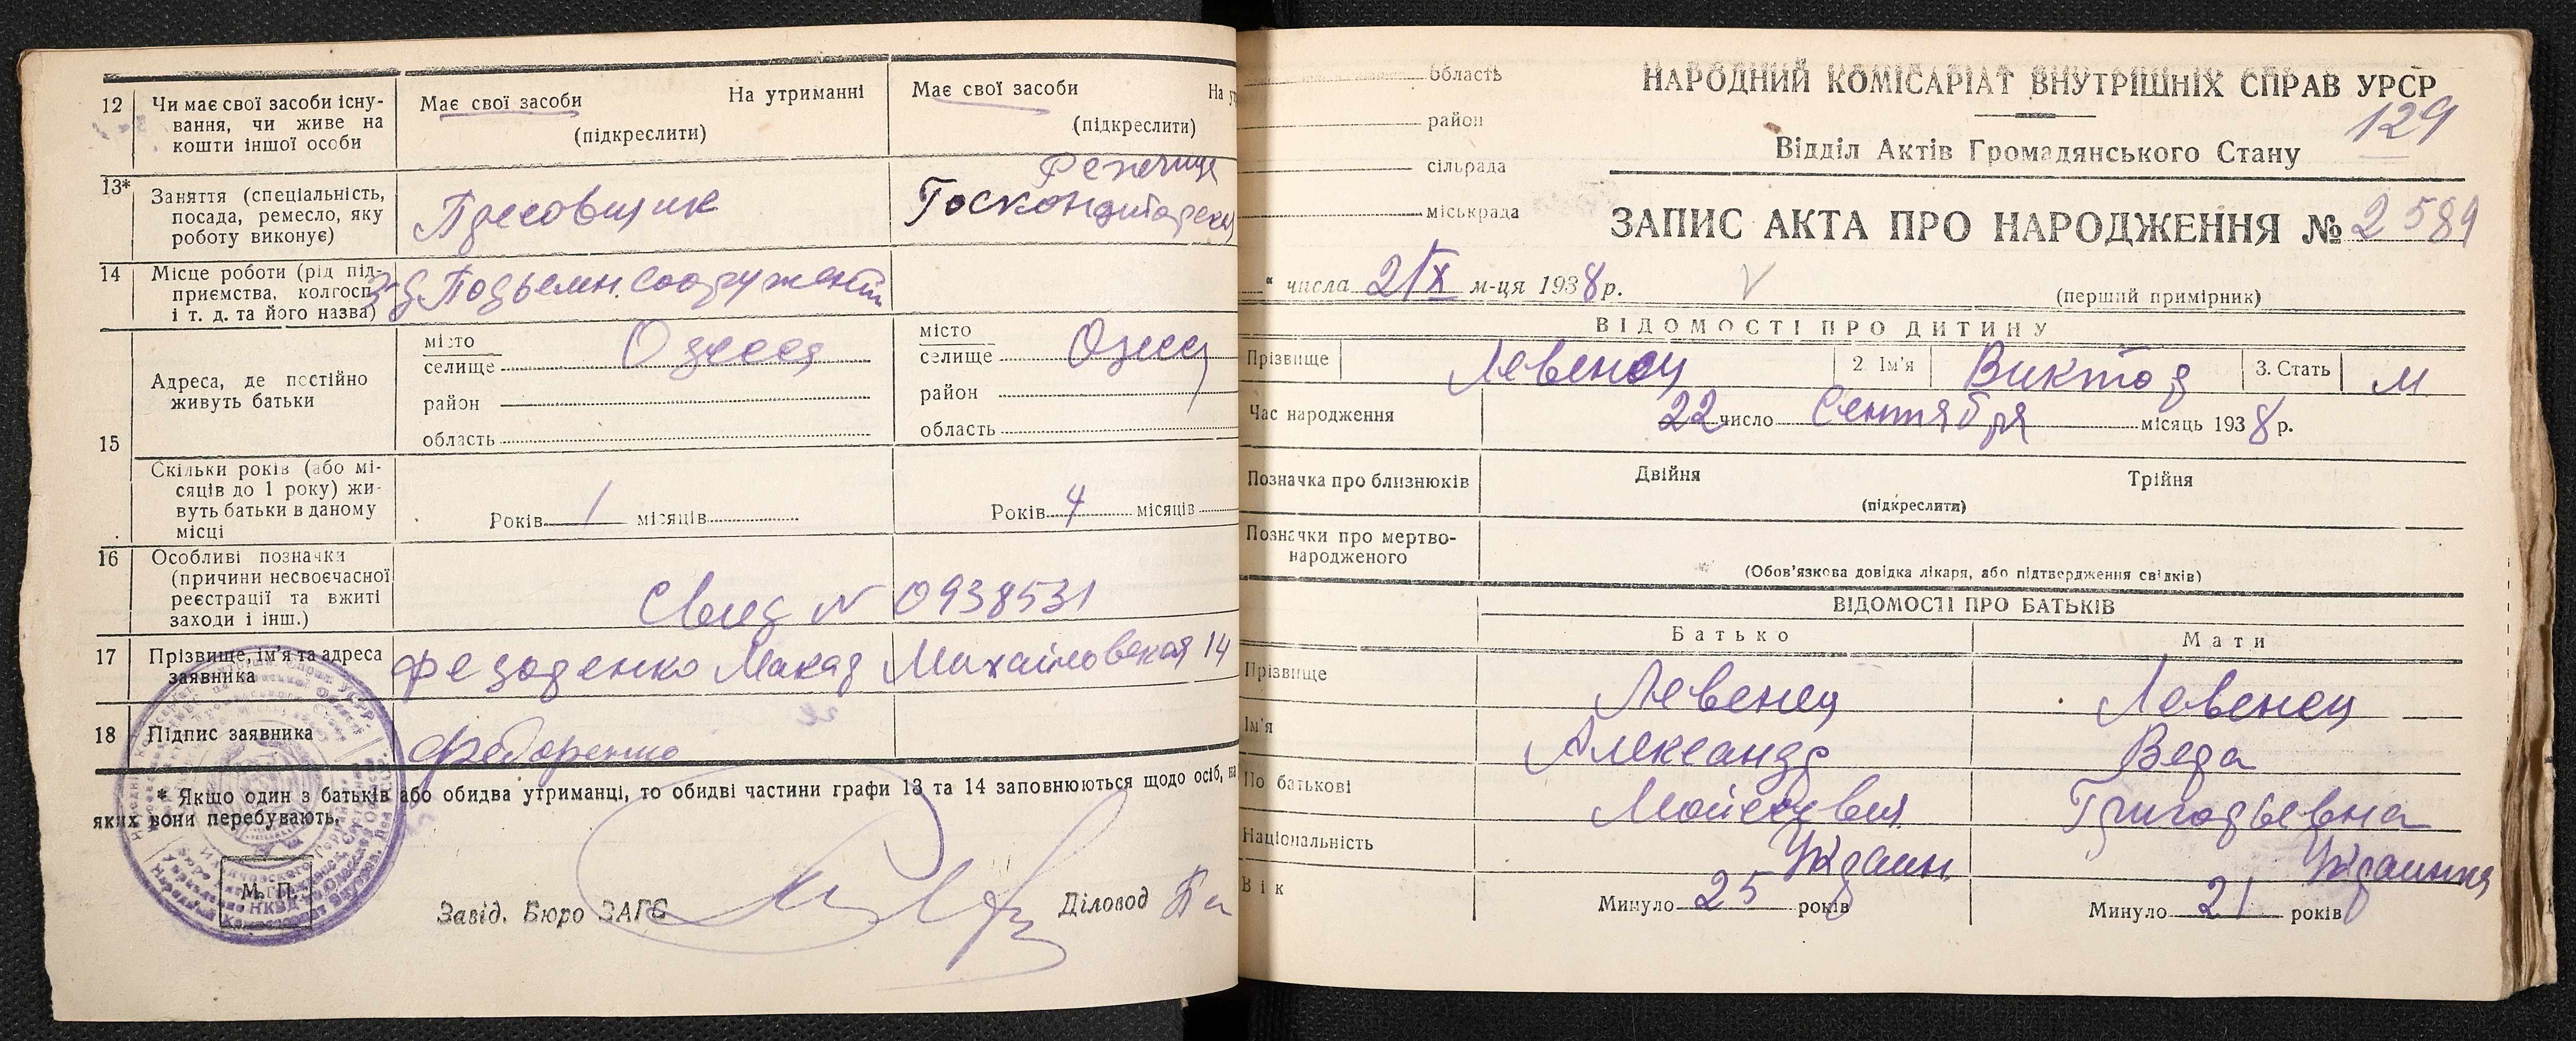 12 Чи має свої засоби існу-
вання, чи живе на
кошти іншої особи
Має свої засоби На утриманні
(підкреслити)
Має свої засоби На у
(підкреслити)
13* Заняття (спеціальність,
посада, ремесло, яку
роботу виконує)
Пресовщик
Госкондитерск
14 Місце роботи (рід під-
приємства, колгосп
і т. д. та його назва)
З-д Подъемн. сооружений
15 Адреса, де постійно
живуть батьки
місто
селище Одесса
район
область
місто
селище Одесса
район
область
Скільки років (або мі-
сяців до 1 року) жи-
вуть батьки в даному
місці
Років 1 місяців
Років 4 місяців
16 Особливі позначки
(причини несвоєчасної
реєстрації та вжиті
заходи і інш.)
Свид N 0938531
17 Прізвище, ім'я та адреса
заявника
Федоренко Макар Михайловская 14
18 Підпис заявника
Федоренко
* Якщо один з батьків або обидва утриманці, то обидві частини графи 13 та 14 заповнюються щодо осіб, на
яких вони перебувають.
М. П.
Завід. Бюро ЗАГС Діловод
область
район
сільрада
міськрада
НАРОДНИЙ КОМІСАРІАТ ВНУТРІШНІХ СПРАВ УРСР
129
Відділ Актів Громадянського Стану
ЗАПИС АКТА ПРО НАРОДЖЕННЯ № 2589
" числа 2/X м-ця 1938 р.
(перший примірник)
ВІДОМОСТІ ПРО ДИТИНУ
Прізвище Левенец 2. Ім'я Виктор 3. Стать М
Час народження 22 число Сентября місяць 1938 р.
Позначка про близнюків Двійня Трійня
(підкреслити)
Позначки про мертво-
народженого
(Обов'язкова довідка лікаря, або підтвердження свідків)
ВІДОМОСТІ ПРО БАТЬКІВ
Батько Мати
Прізвище Левенец Левенец
Ім'я Александр Вера
По батькові Моисеевич Григорьевна
Національність Украин. Украинка
Вік Минуло 25 років Минуло 21 років